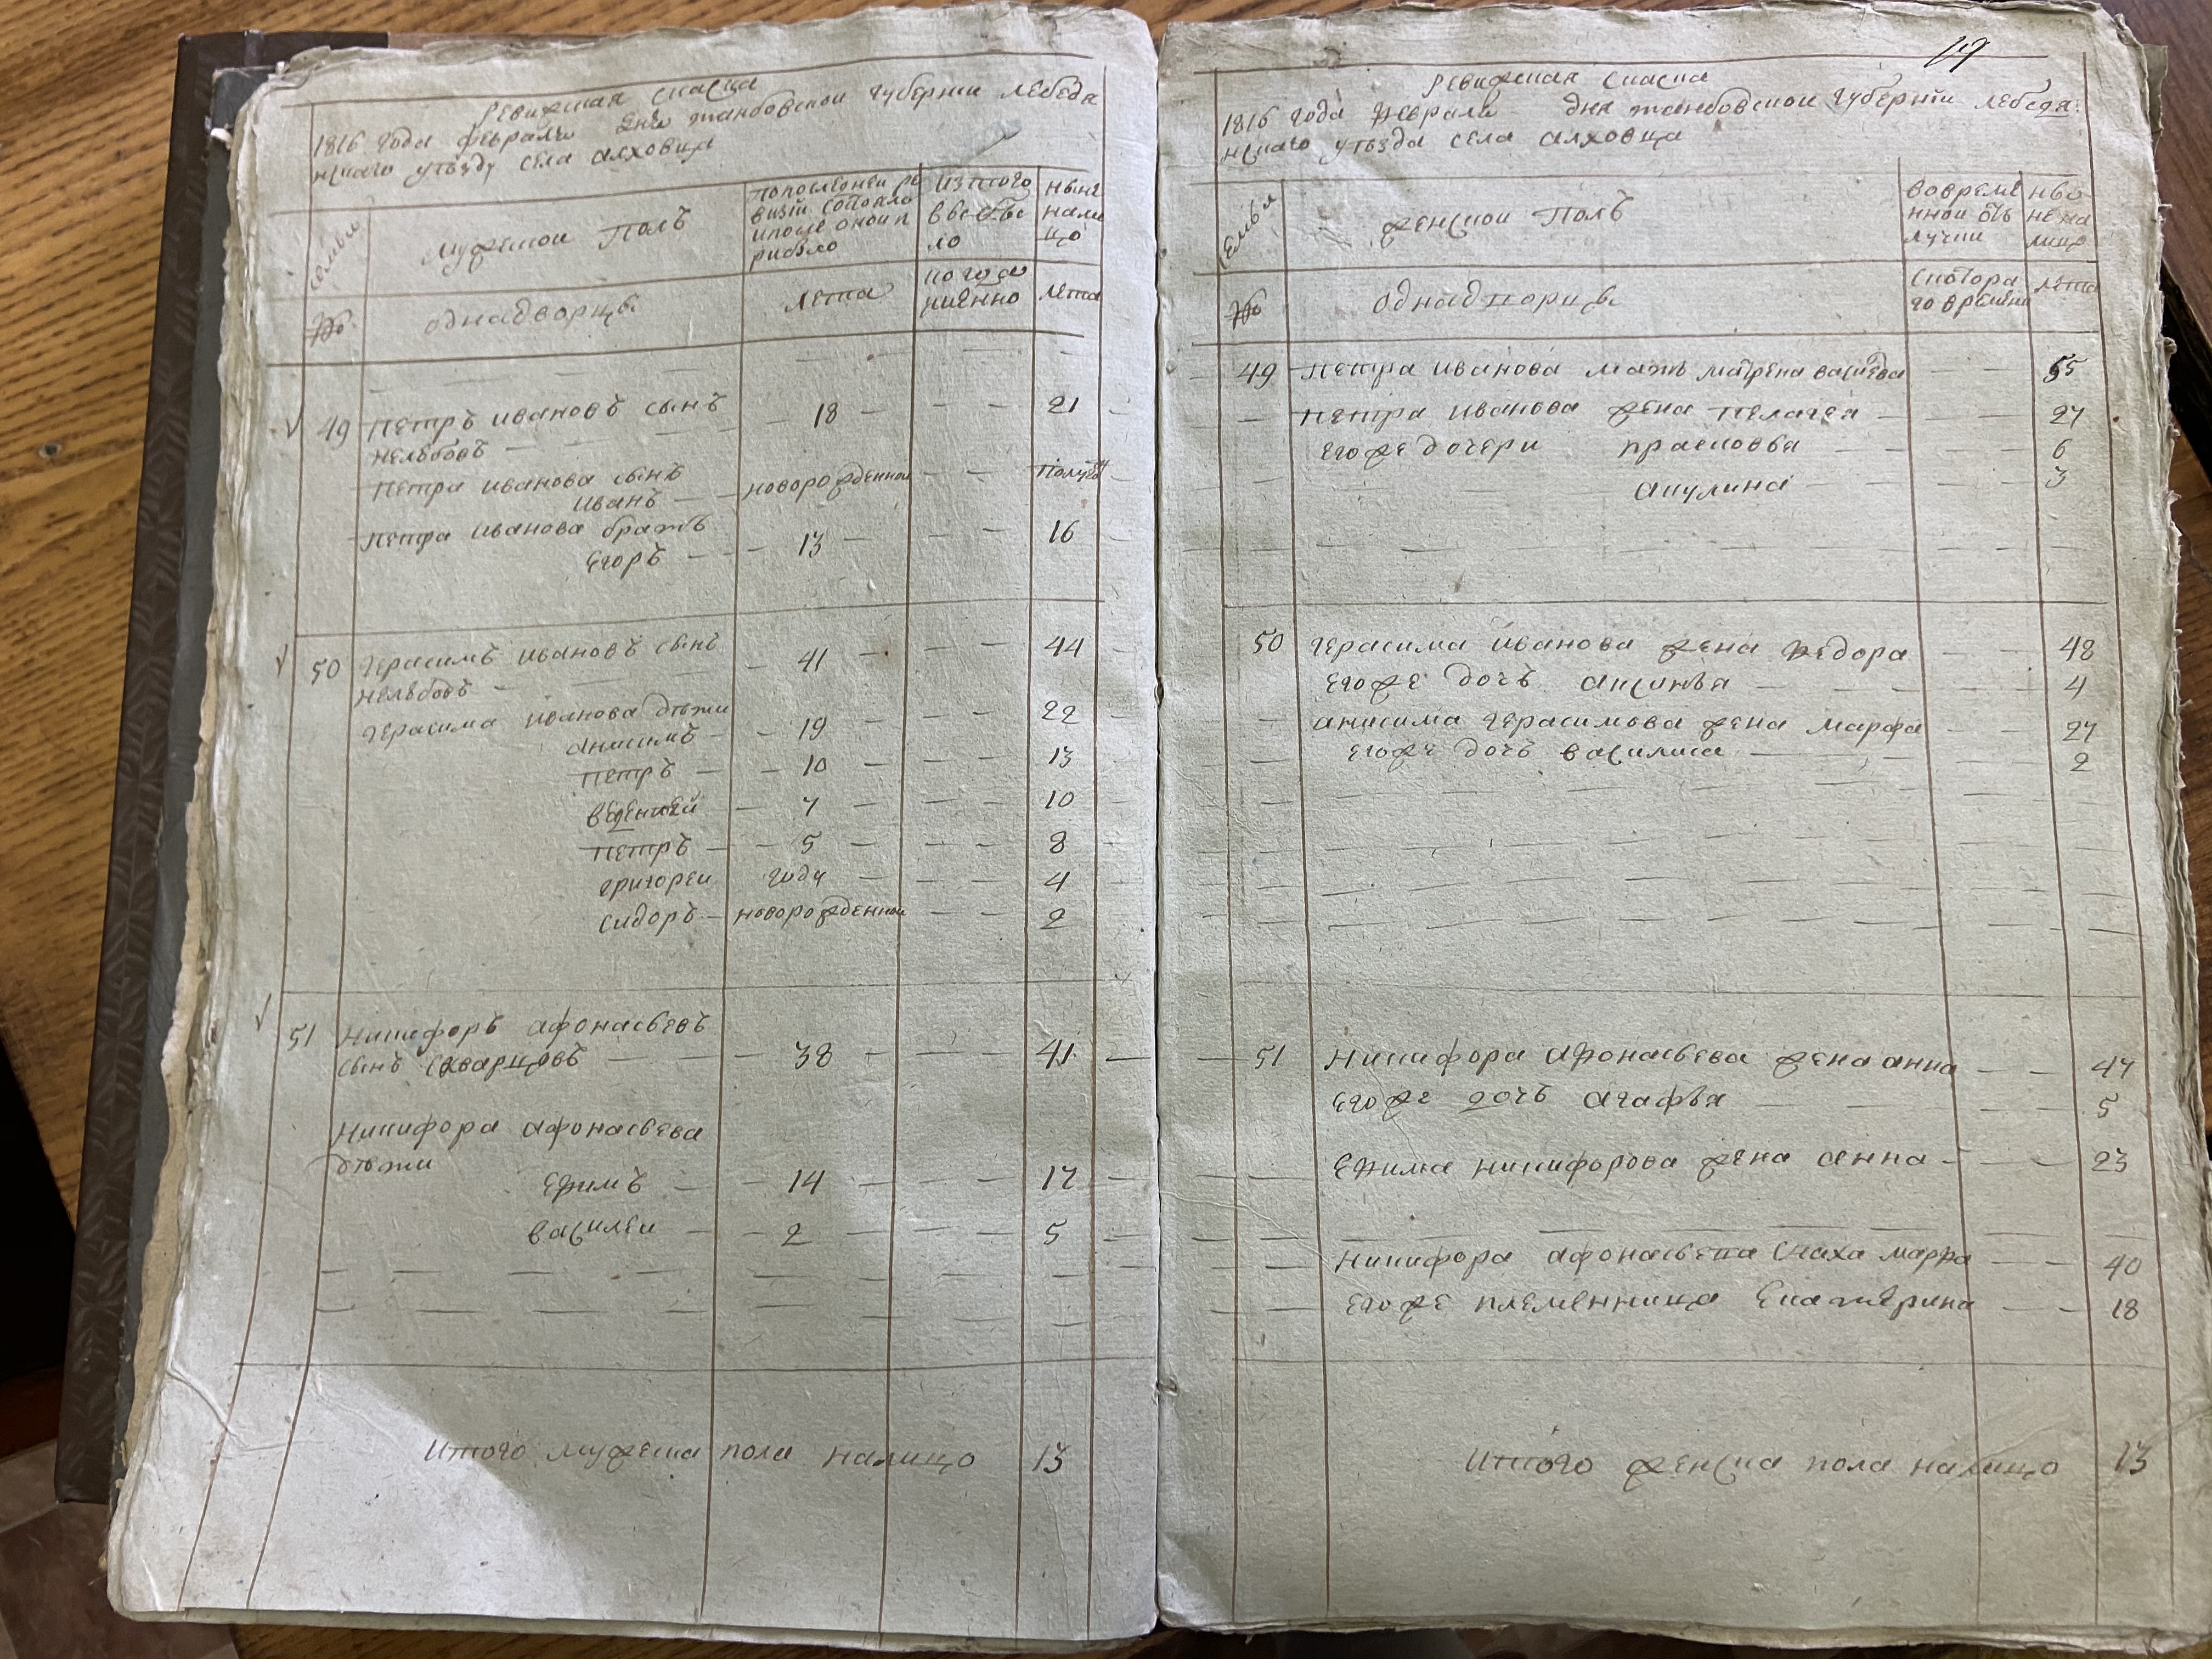 Ревижская скаска
1816 года февраля дня танбовской губерни лебедя
нскаго уѣзду села алховца
семьи
мужескои полъ
попоследнеи ре
визіи состояло
ипосле оной п
рибыло
изтого
выбы
ло
ныне
нали
цо
№
однадворцы
лета
когда
имянно
лета
49 петръ ивановъ сынъ 18 21
нелѣбовъ
петра иванова сынъ
иванъ новорожденной полугоду
петра иванова братъ
егоръ 13 16
50 герасимъ ивановъ сынъ 41 44
нелѣбовъ
герасима иванова дѣти
анисимъ 19 22
петръ 10 13
веденикей 7 10
петръ 5 8
григореи году 4
сидоръ новорожденной 2
51 никифоръ афонасьевъ
сынъ скварцовъ 38 41
никифора афонасьева
дѣти
ефимъ 14 17
василеи 2 5
Итого мужеска пола налицо 13
119
Ревижская скаска
1816 года февраля дня танбовскои губерніи лебедя
нскаго уѣзда села алховца
семьи
женскои полъ
вовреме
нной отъ
лучки
ныне
на
лицо
№
однадворцы
скотора
го времяни
лета
49 петра иванова мать матрена васил̾ева 55
петра иванова жена пелагея 27
егоже дочери прасковья 6
акулина 3
50 герасима иванова жена федора 48
егоже дочь аксинья 4
анисима герасимова жена марфа 27
егоже дочь василиса 2
51 никифора афонасьева жена анна 47
егоже дочь агафья 5
ефима никифорова жена анна 23
никифора афонасьева снаха марфа 40
егоже племенница екатерина 18
Итого женска пола налицо 13